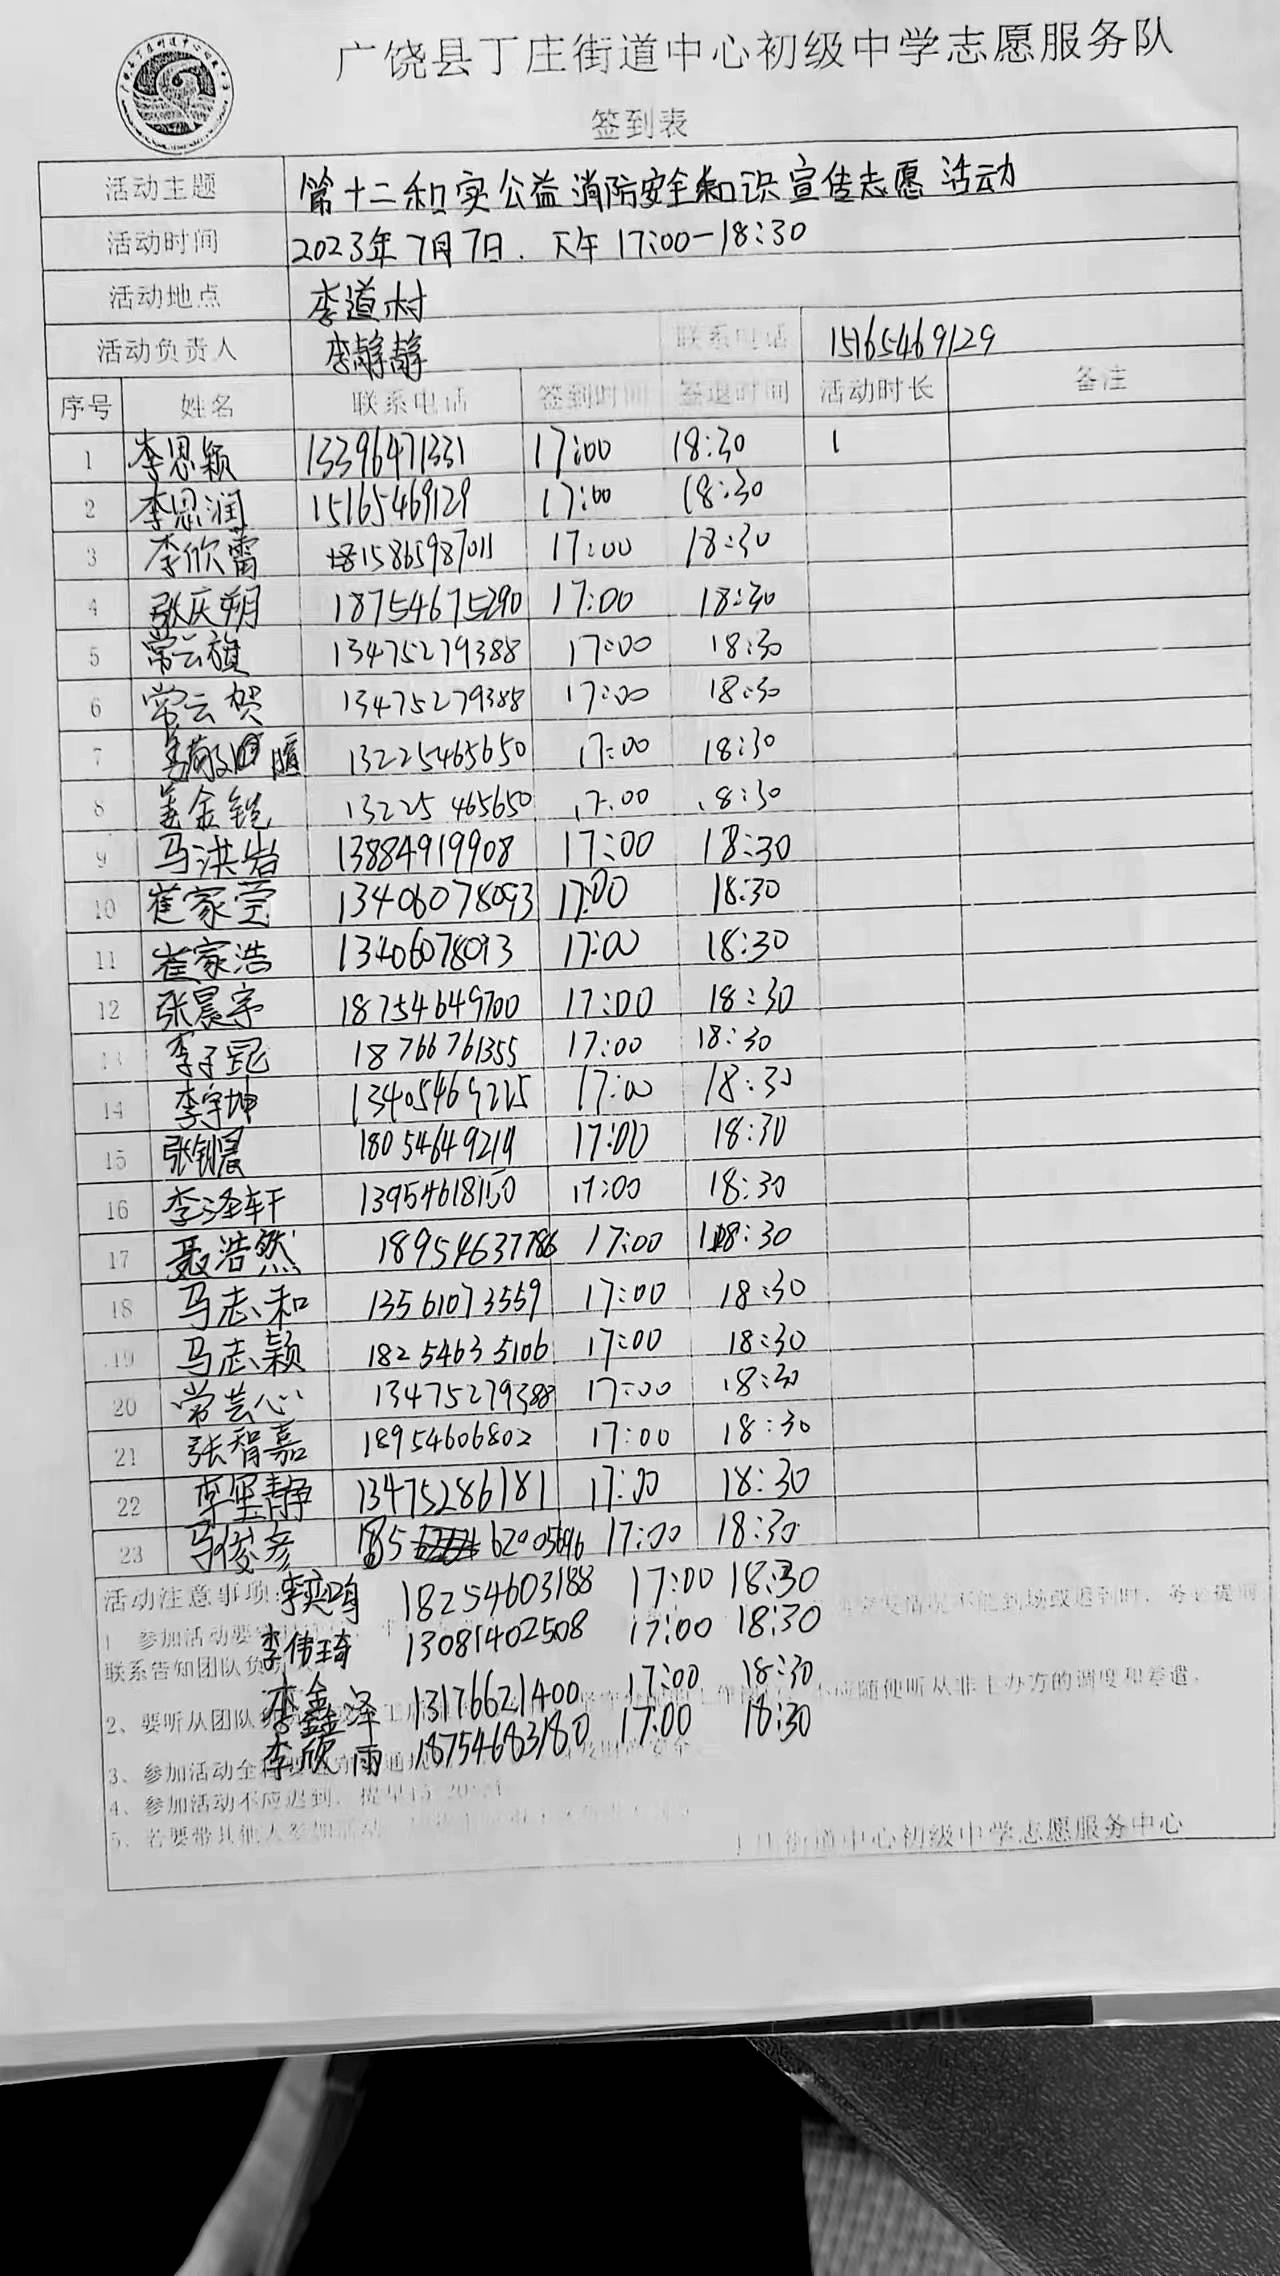 广饶县丁庄街道中心初级中学志愿服务队
签到表
活动主题 第十二和实公益消防安全知识宣传志愿活动
活动时间 2023年7月7日. 下午17:00-18:30
活动地点 李道村
活动负责人 李静静 联系电话 15165469129
序号 姓名 联系电话 签到时间 签退时间 活动时长 备注
1 李思颖 13396471331 17:00 18:30 1
2 李思润 15165469129 17:00 18:30
3 李欣蕾 15865987011 17:00 18:30
4 张庆朔 18754675290 17:00 18:30
5 常云旗 13475279388 17:00 18:30
6 常云贺 13475279388 17:00 18:30
7 13225465650 17:00 18:30
8 姜金铠 13225465650 17:00 18:30
9 马洪岩 13884919908 17:00 18:30
10 崔家莹 13406078093 17:00 18:30
11 崔家浩 13406078093 17:00 18:30
12 张晨宇 18754649700 17:00 18:30
13 李子冠 18766761355 17:00 18:30
14 李宇坤 13405469225 17:00 18:30
15 张钏晨 18054649219 17:00 18:30
16 李泽轩 13954618150 17:00 18:30
17 聂浩然 18954637786 17:00 18:30
18 马志和 13561073559 17:00 18:30
19 马志颖 18254635106 17:00 18:30
20 常芸心 13475279388 17:00 18:30
21 张智嘉 18954606802 17:00 18:30
22 李坚静 13475286181 17:00 18:30
23 马俊彦 62005696 17:00 18:30
活动注意事项: 李奕鸣 18254603188 17:00 18:30
1 参加活动要 情况不能到场或迟到时，务必提前
李伟琦 13081402508 17:00 18:30
联系告知团队负
李鑫泽 13176621400 17:00 18:30
2、要听从团队 随便听从非主办方的调度和差遣。
李欣雨 18754683180 17:00 18:30
3、参加活动全 安全
4、参加活动不应迟到，提早15-20
5、若要带其他人参加活动
丁庄街道中心初级中学志愿服务中心